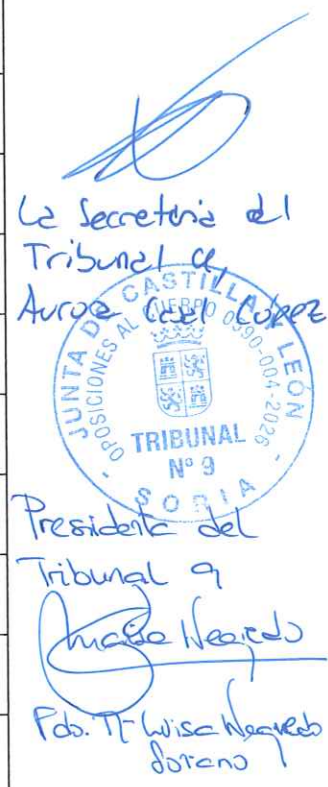 La Secretaria del
Tribunal 9,
Aurora
JUNTA DE CASTILLA Y LEÓN
OPOSICIONES AL CUERPO 0590-004-2026
TRIBUNAL
Nº 9
SORIA
Presidenta del
Tribunal 9
Fdo. Mª Luisa Negredo
Soriano